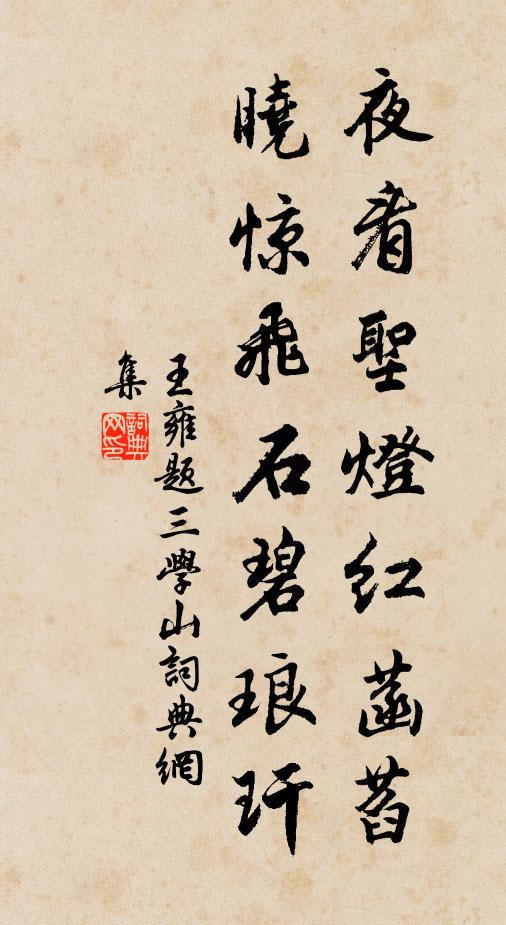 夜看聖燈紅菡萏
曉惊飛石碧琅玕
王雍題三學山詞典網
集
詞典
网印